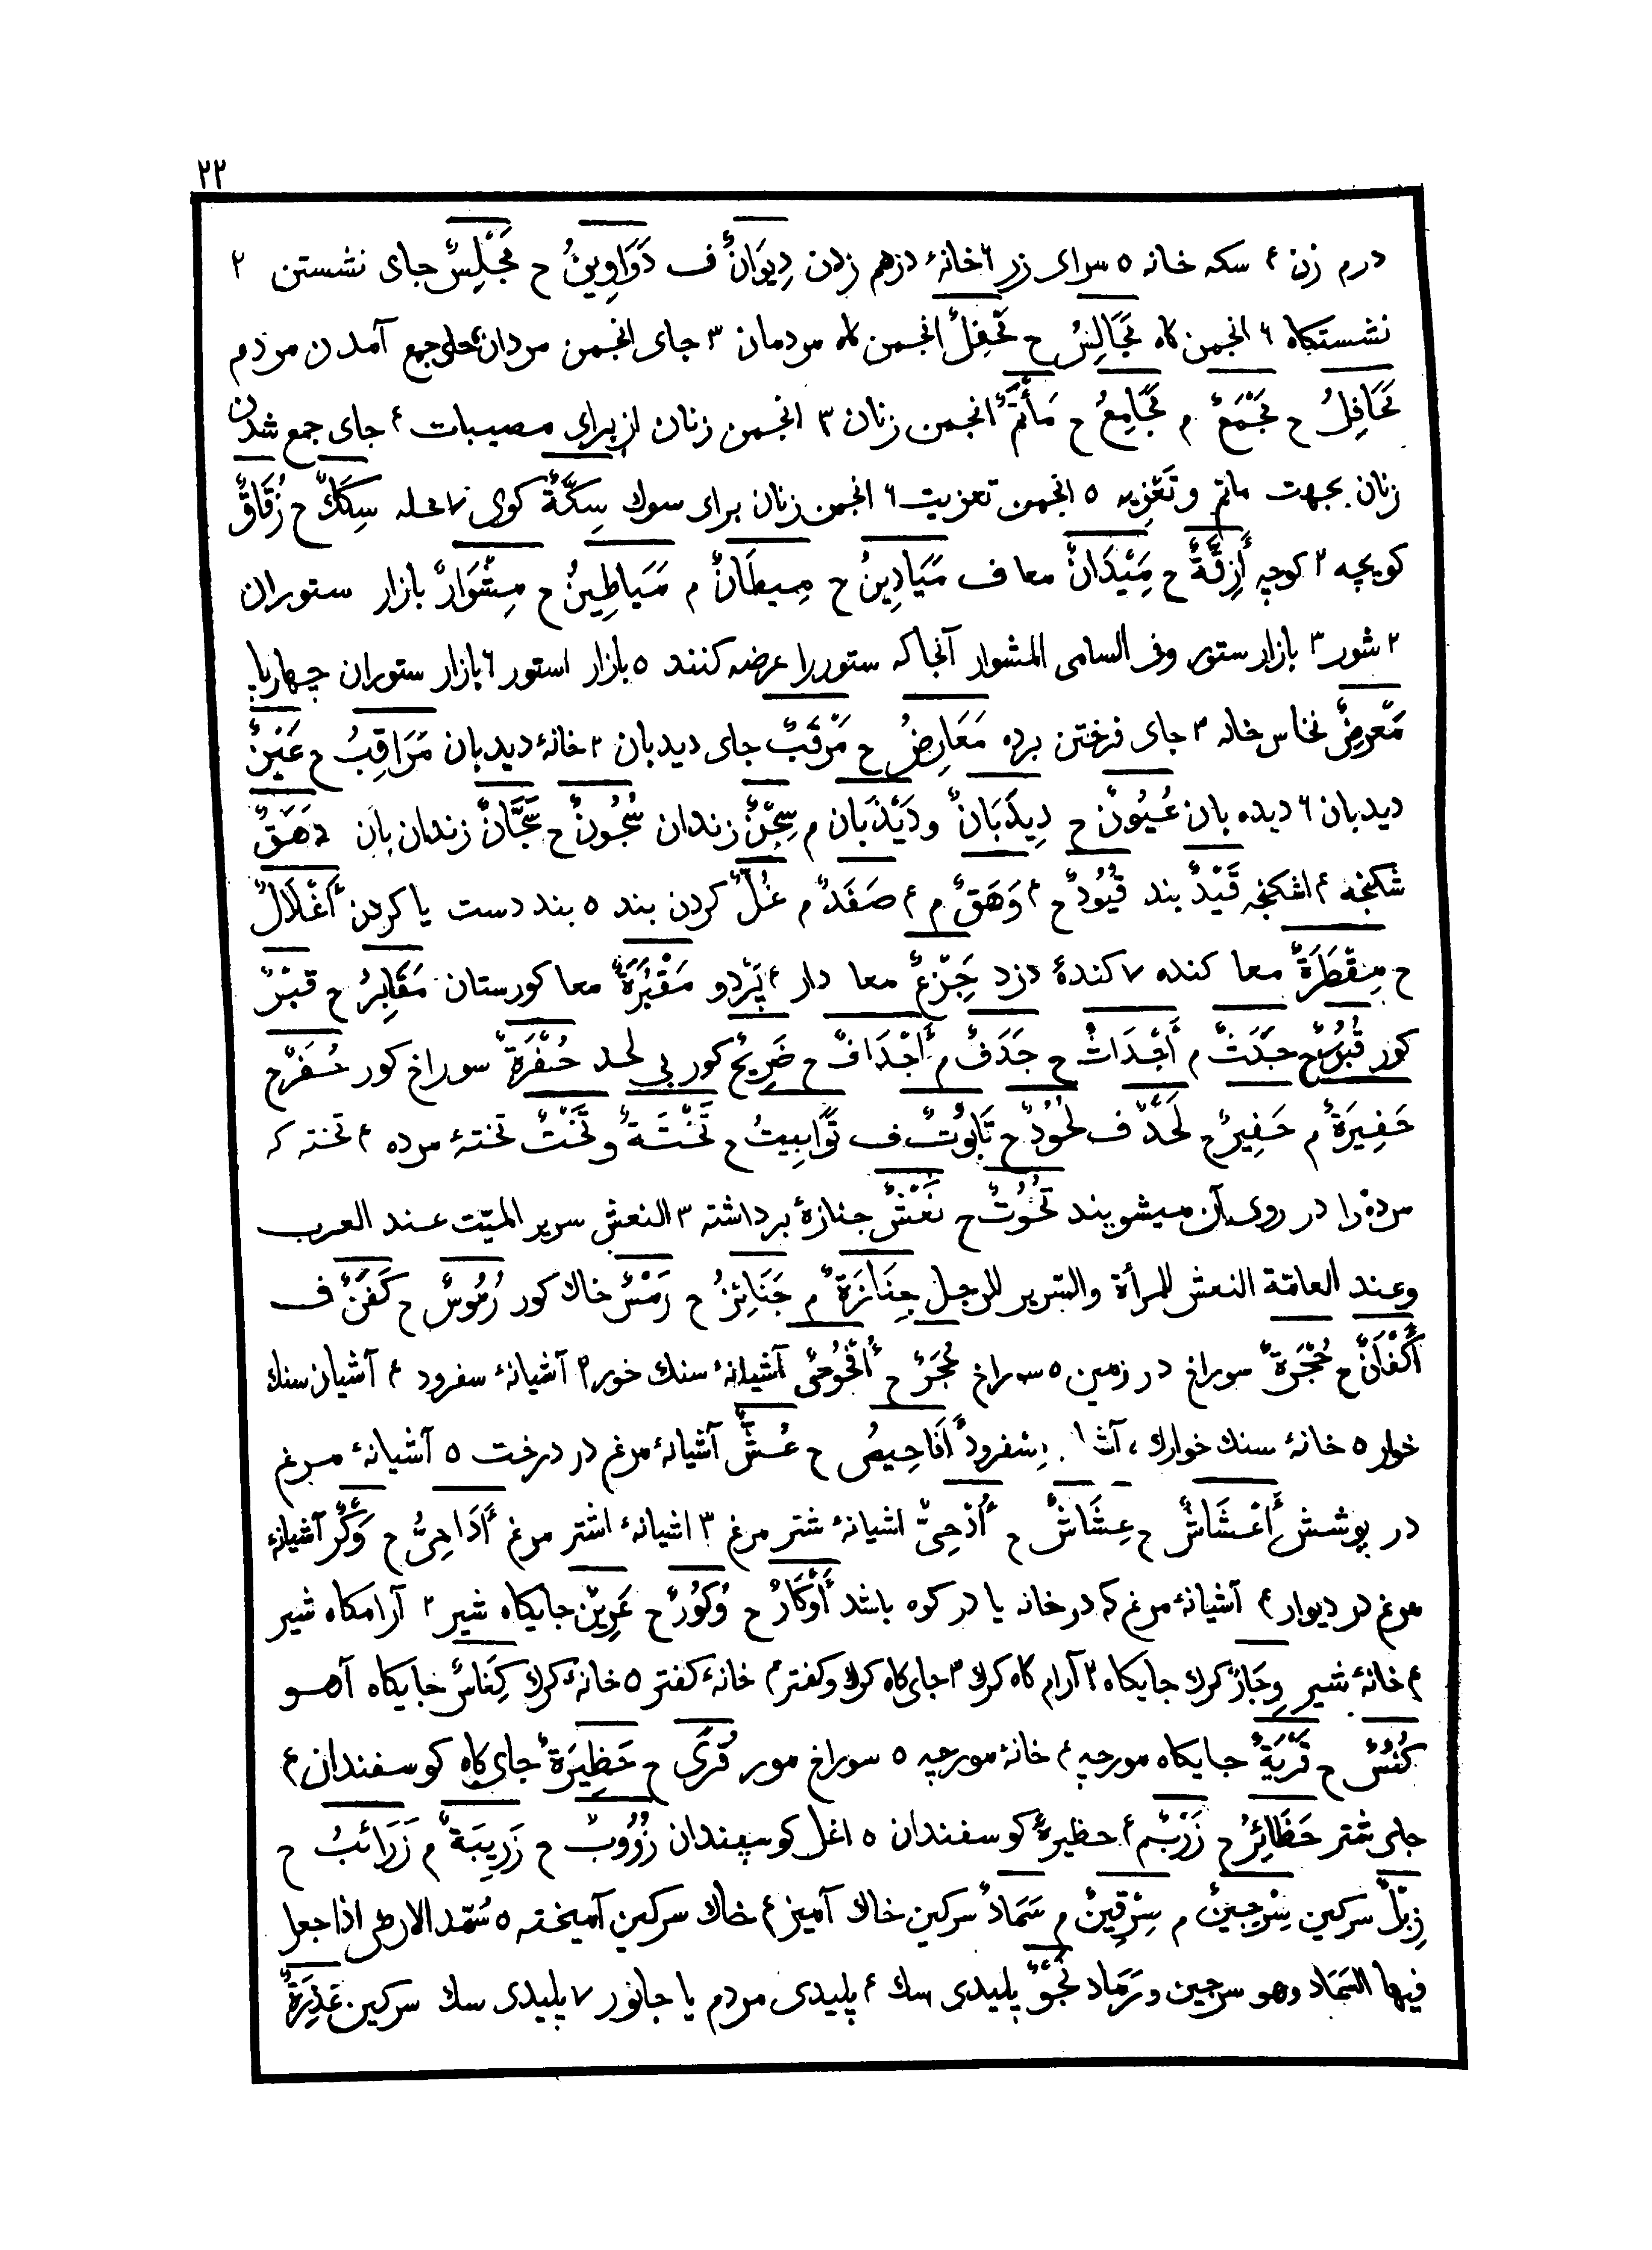 ۲۲
درم زن ۴ سکه خانه ۵ سرای زر ۶ خانهٔ درهم زدن دِیوَانٌ ف دَوَاوِینُ ح مَجْلِسٌ جای نشستن ۲
نشستکاه ۶ انجمن کاه مَجَالِسُ ح مَحْفِلٌ انجمن کاه مردمان ۳ جای انجمن مردان جمع آمدن مردم
مَحَافِلُ ح مَجْمَعٌ م مَجَامِعُ ح مَأْتَمٌ انجمن زنان ۳ انجمن زنان از برای مصیبات ۴ جای جمع شدن
زنان بجهت ماتم و تَعْزِیه ۵ انجمن تعزیت ۶ انجمن زنان برای سوك سِکَّةٌ کوی ۷ محله سِکَكٌ ح زُقَاقٌ
کویچه ۲ کوچه أَزِقَّةٌ ح مَیْدَانٌ معا ف مَیَادِینُ ح مِیطَانٌ م مَیَاطِینُ ح مِشْوَارٌ بازار ستوران
۲ شور ۳ بازار ستور وفی السامی المشوار آنجا که ستور را عرضه کنند ۵ بازار استور ۶ بازار ستوران چهارپا
مَعْرِضٌ نخاس خانه ۳ جای فرختن برده مَعَارِضُ ح مَرْقَبٌ جای دیدبان ۲ خانهٔ دیدبان مَرَاقِبُ ح عَیْنٌ
دیدبان ۶ دیده بان عُیُونٌ ح دِیدَبَانٌ و دَیْدَبَان م سِجْنٌ زندان سُجُونٌ ح سَجَّانٌ زندان بان دَهَقٌ
شکنجه ۴ اشکنجه قَیْدٌ بند قُیُودٌ ح ۴ وَهَقٌ م ۴ صَفَدٌ م غُلٌّ کردن بند ۵ بند دست یا کردن أَغْلَالٌ
ح مِقْطَرَةٌ معا کنده ۷ کندهٔ دزد جِزْعٌ معا دار ۴ پَرْدو مَقْبُرَةٌ معا کورستان مَقَابِرُ ح قَبْرٌ
کور قُبُورٌ ح جَدَثٌ م أَجْدَاثٌ ح جَدَفٌ م أَجْدَافٌ ح ضَرِیحٌ کور بی لحد حُفْرَةٌ سوراخ کور حُفَرٌ ح
حَفِیرَةٌ م حَفِیرٌ ح لَحْدٌ ف لُحُودٌ ح تَابُوتٌ ف تَوَابِیتُ ح تَخْتَةٌ و تَخْتٌ تختهٔ مرده ۴ تخته که
مرده را در روی آن میشویند تُخُوتٌ ح نَعْشٌ جنازهٔ برداشته ۳ النعش سریر المیّت عند العرب
وعند العامّة النعش للمرأة والسّریر للرجل جِنَازَةٌ م جَنَائِزُ ح رَمْسٌ خاك کور رُمُوسٌ ح کَفَنٌ ف
أَکْفَانٌ ح جُحْرَةٌ سوراخ در زمین ۵ سوراخ جُحَرٌ ح أُفْحُوصٌ آشیانهٔ سنك خور ۳ آشیانهٔ سفرود ۴ آشیان سنك
خوار ۵ خانهٔ سنك خوارك اسفرود أَفَاحِیصُ ح عُشٌّ آشیانهٔ مرغ در درخت ۵ آشیانهٔ مرغ
در پوشش أَعْشَاشٌ ح عِشَاشٌ ح أُدْحِیٌّ اشیانهٔ شتر مرغ ۳ اشیانهٔ اشتر مرغ أَدَاحِیُّ ح وَکْرٌ آشیانهٔ
مرغ در دیوار ۴ آشیانهٔ مرغ که در خانه یا در کوه باشد أَوْکَارٌ ح وُکُورٌ ح عَرِینٌ جایکاه شیر ۲ آرامکاه شیر
۴ خانهٔ شیر وِجَارٌ کرك جایکاه ۲ آرام کاه کرك ۳ جای کاه کرك و کفتر ۴ خانهٔ کفتر ۵ خانهٔ کرك کِنَاسٌ جایکاه آهو
کُنُسٌ ح قَرْیَةٌ جایکاه مورچه ۴ خانهٔ مورچه ۵ سوراخ مور قُرًی ح حَظِیرَةٌ جای کاه کوسفندان ۴
جای شتر حَظَائِرُ ح زَرْبٌ م ۴ حظیرهٔ کوسفندان ۵ اغل کوسپندان زُرُوبٌ ح زَرِیبَةٌ م زَرَائبُ ح
زِبْلٌ سرکین سِرْجِینٌ م سِرْقِینٌ م سَمَادٌ سرکین خاك آمیز ۴ خاك سرکین آمیخته ۵ سُمّد الارض اذا جعل
فیها السَمَاد وهو سرجین و رَمَاد نَجْوٌ پلیدی سك ۴ پلیدی مردم یا جانور ۷ پلیدی سك سرکین عَذِرَةٌ